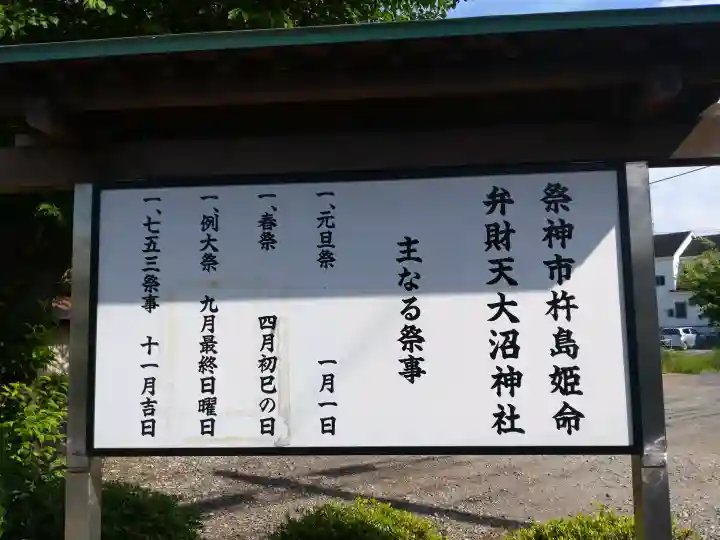 祭神市杵島姫命
弁財天大沼神社
主なる祭事
一、元旦祭 一月一日
一、春祭 四月初巳の日
一、例大祭 九月最終日曜日
一、七五三祭事 十一月吉日